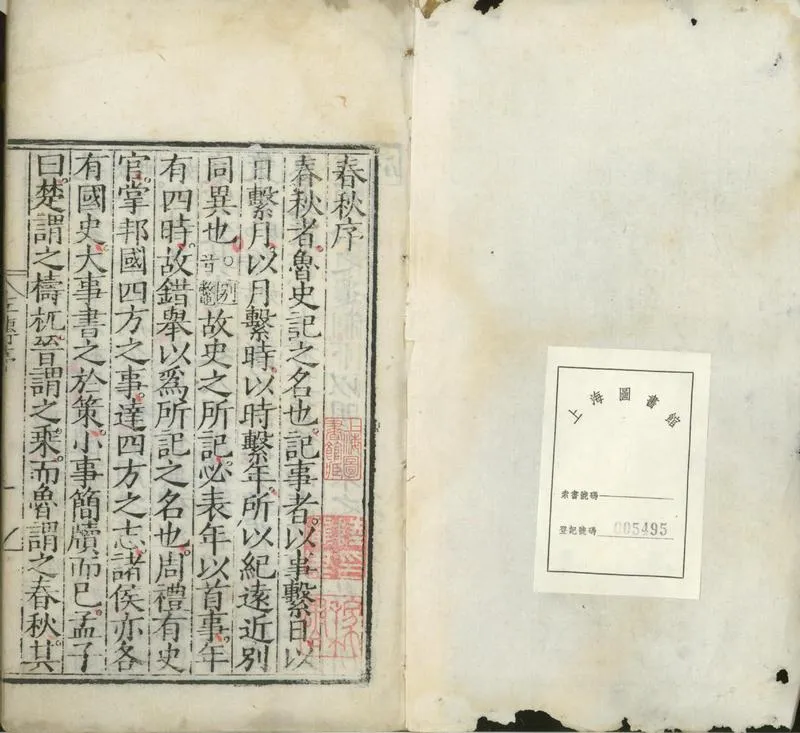 春秋序
春秋者魯史記之名也。記事者。以事繫日以
日繫月。以月繫時。以時繫年。所以紀遠近別
同異也。故史之所記。必表年以首事。年
有四時。故錯舉以爲所記之名也。周禮有史
官。掌邦國四方之事。達四方之志。諸侯亦各
有國史。大事書之於策。小事簡牘而已。孟子
曰。楚謂之檮杌。晉謂之乘。而魯謂之春秋。其
上海圖書館藏
上海圖書館
索書號碼
登記號碼 005495